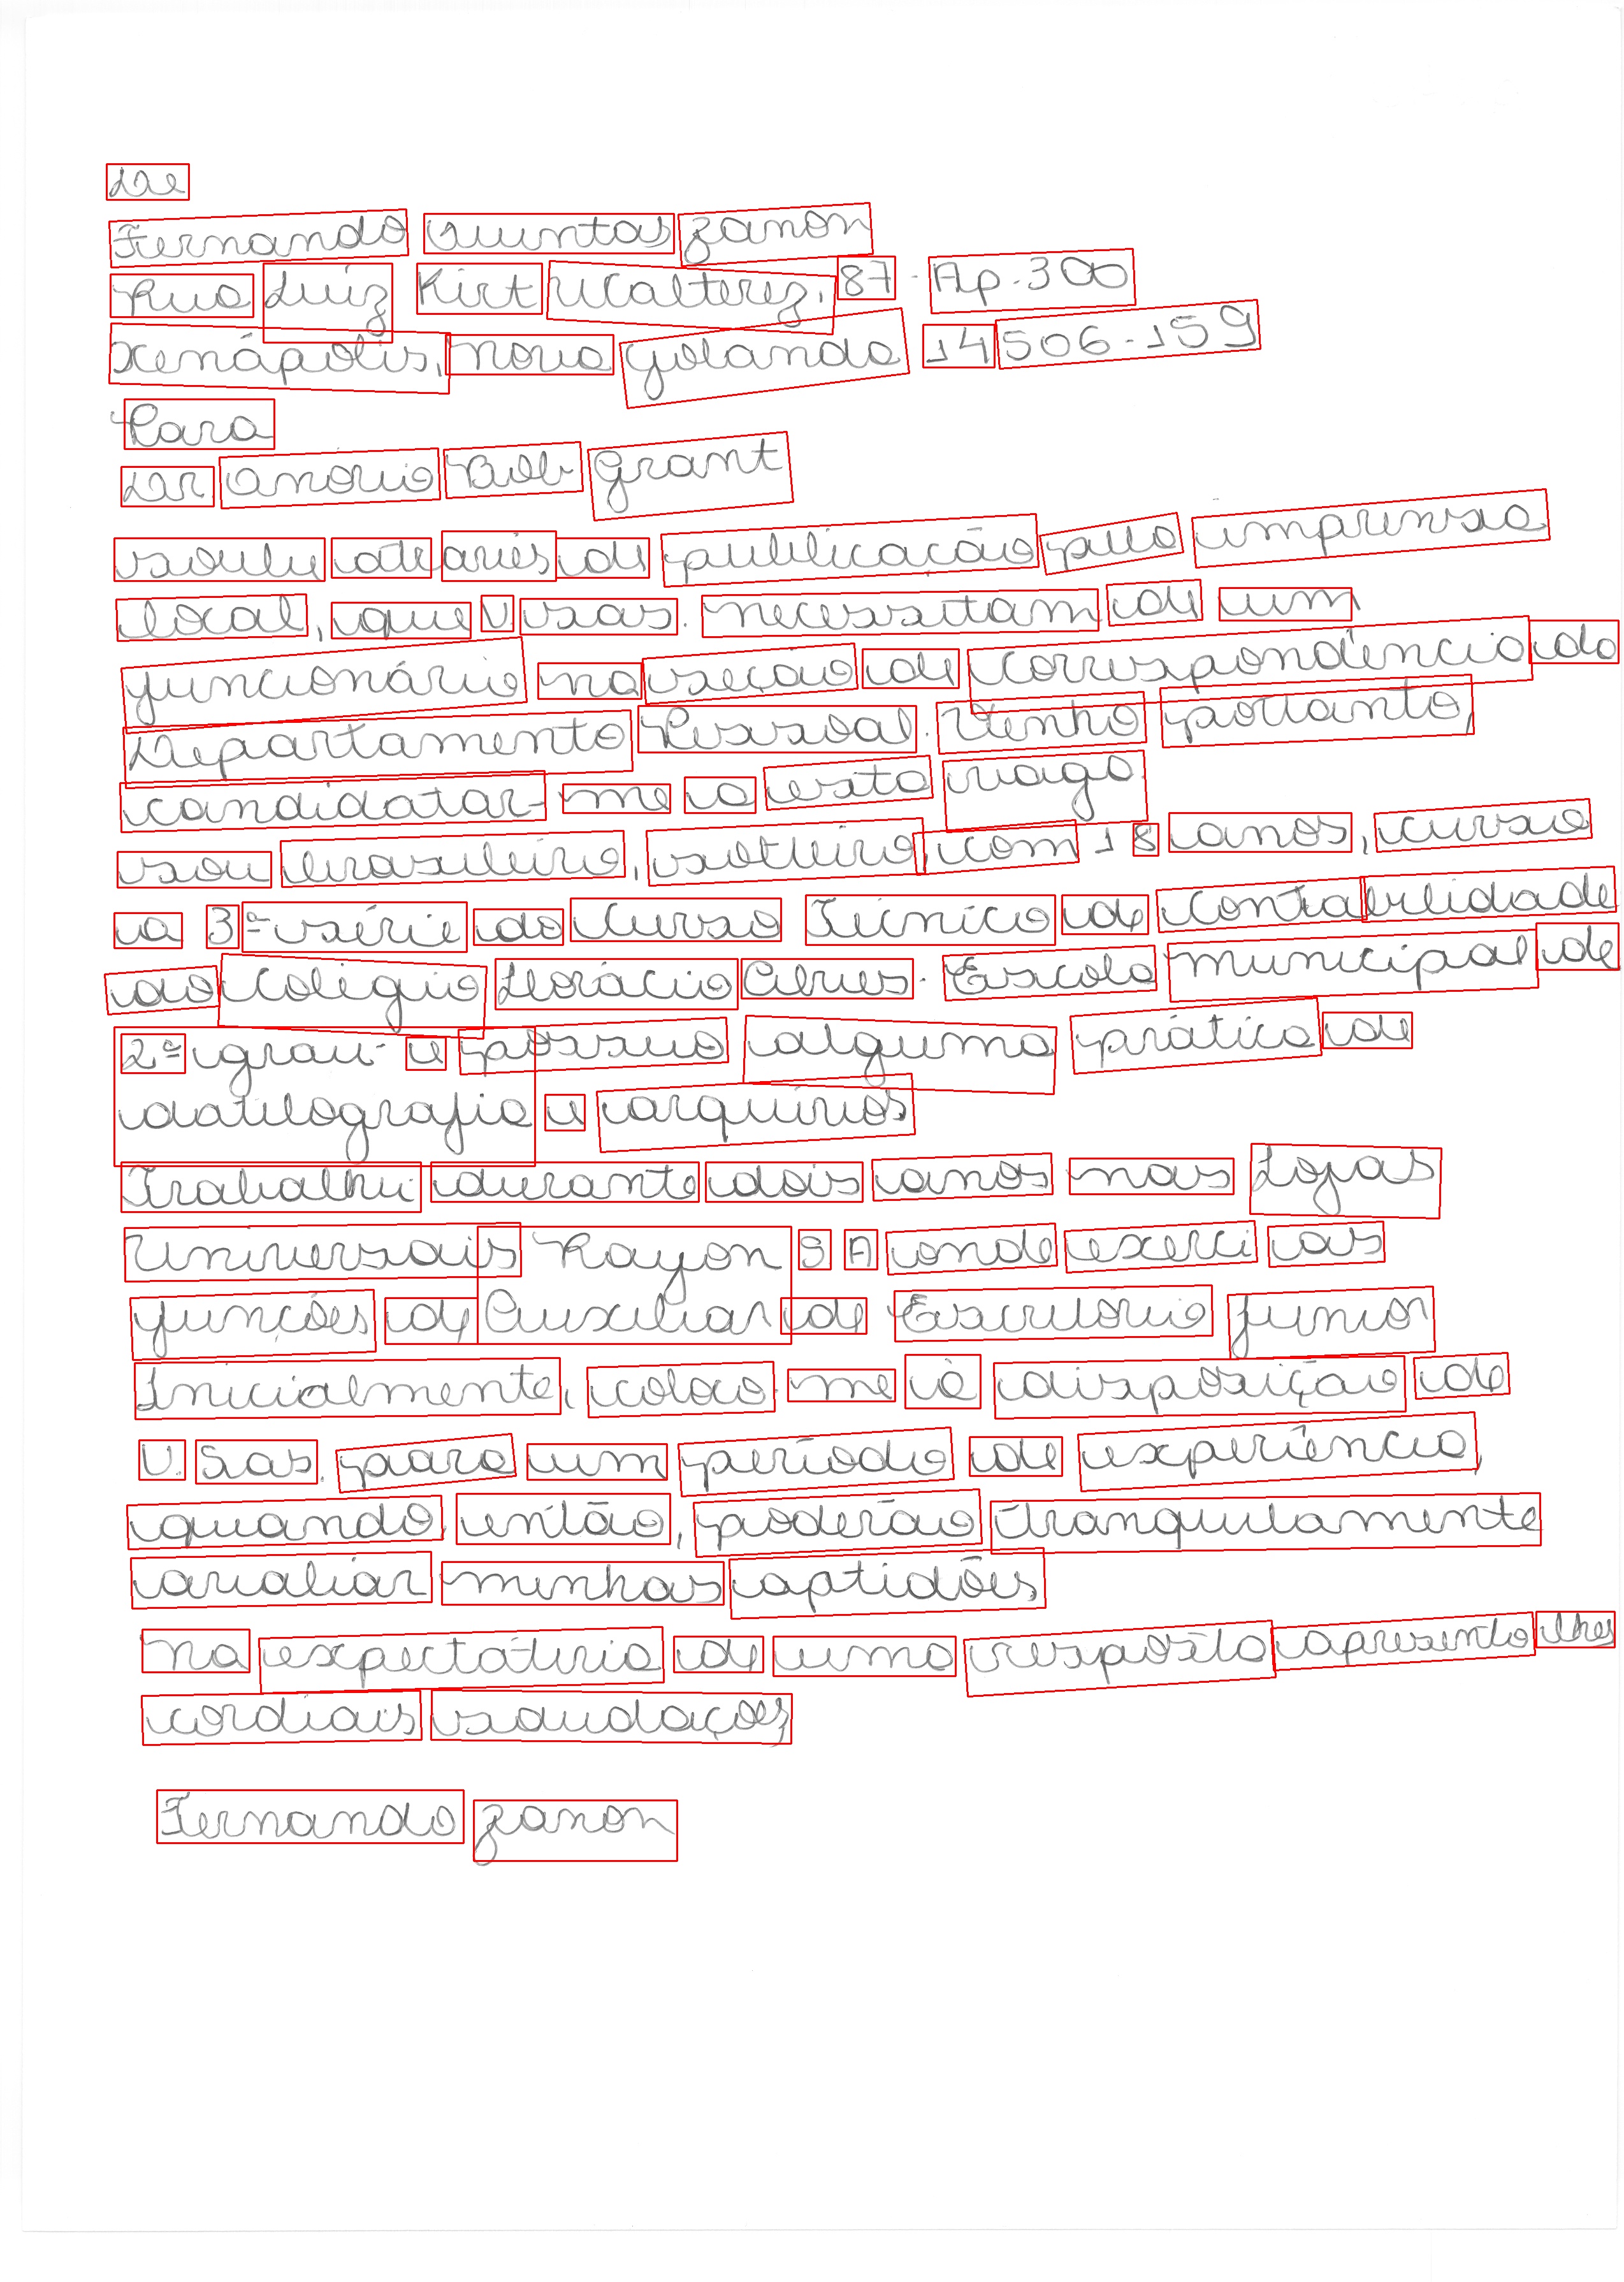 De
Fernando Quintas Zanon
Rua Luíz Kirt Walterez, 87 - Ap. 300
Xenápolis, Nova Yolanda 14506-159
Para
Dr Onório Bob Grant
soube através de publicação pela imprensa
local, que V. Sas. necessitam de um
funcionário na seção de Correspondência do
Departamento Pessoal. Venho portanto,
candidatar-me a esta vaga.
sou brasileiro, solteiro, com 18 anos, curso
a 3ª série do Curso Técnico de Contrabilidade
do Colégio Horácio Alves. Escola municipal de
2º grau - e possuo alguma prática de
datilografia e arquivos.
Trabalhei durante dois anos nas Lojas
Universais Rayon S A onde exerci as
funções de Auxiliar de Escritório Junior
Inicialmente, coloco-me à disposição de
V. Sas. para um período de experiência,
quando então, poderão tranquilamente
avaliar minhas aptidões.
Na expectativa de uma resposta apresento lhes
cordiais saudações
Fernando Zanon